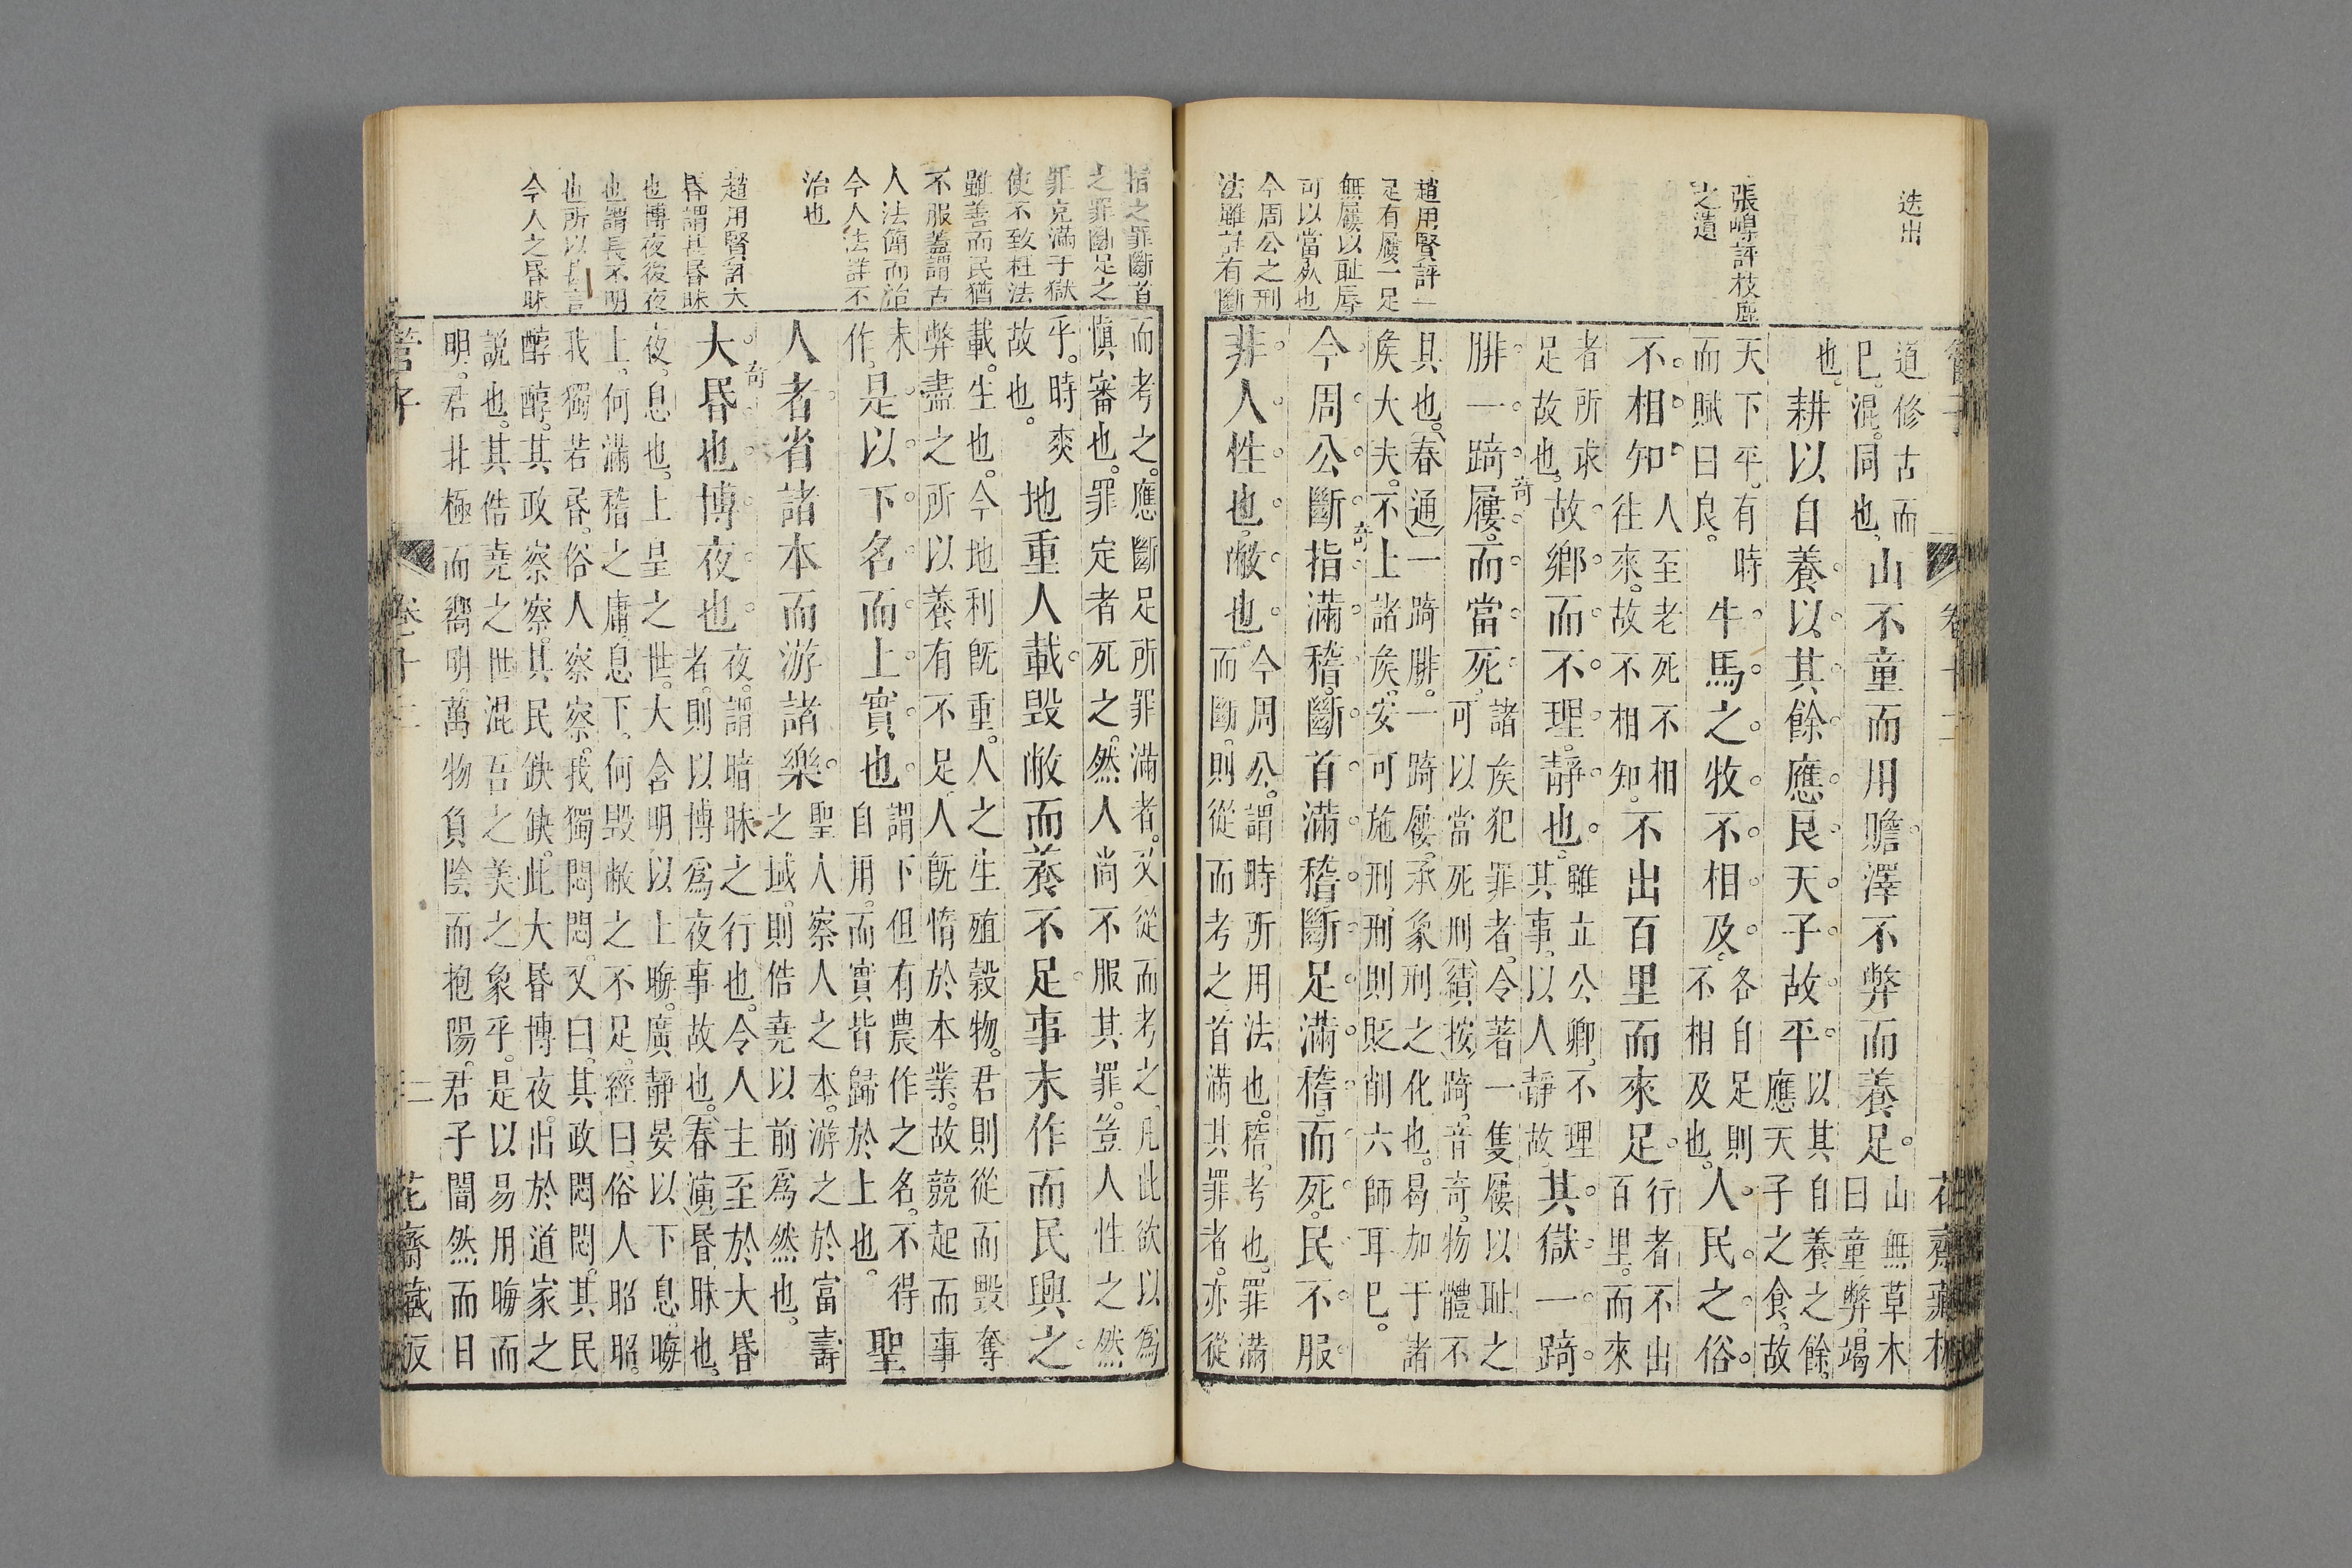 迭出
張嵲評枝塵
之遺
趙用賢評一
足有屨一足
無屨以耻辱
可以當死也
今周公之刑
法雖詳有斷
卷十二
道修古而
巳。混。同也。
山不童而用贍澤不弊而養足。
山無草木
曰童弊竭
也。
耕以自養以其餘應良天子故平。
以其自養之餘。
應天子之食。故
天下平。有時
而賦曰良。
牛馬之牧不相及。
各自足則
不相及也。
人民之俗
不相知
人至老死不相
往來。故不相知。
不出百里而來足。
行者不出
百里。而來
者所求
足故也。
故鄉而不理。靜也。
雖立公卿。不理
其事。以人靜故。
其獄一踦
腓一踦屨。而當死。
諸矦犯罪者。令著一隻屨以耻之
可以當死刑(績按)踦。音奇。物體不
具也。(春通)一踦腓。一踦屨。承象刑之化也。曷加于諸
矦大夫。不上諸矦。安可施刑。刑則貶削六師耳巳。
今周公斷指滿稽。斷首滿稽斷足滿稽。而死。民不服
非人性也。敝也。
今周公。謂時所用法也。稽。考也。罪滿
而斷。則從而考之首滿其罪者。亦從
指之罪斷首
之罪斷足之
罪克滿于獄
使不致枉法
雖善而民猶
不服蓋謂古
人法簡而治
今人法詳不
治也
趙用賢評大
昏謂其昏昧
也博夜後夜
也謂長不明
也所以甚言
今人之昏昧
而考之。應斷足所罪滿者。又從而考之。凡此欲以爲
慎審也。罪定者死之。然人尚不服其罪。豈人性之然
乎。時爽
故也。
地重人載毀敝而養不足事末作而民興之
載。生也。今地利旣重。人之生殖穀物。君則從而毀奪
弊盡之所以養有不足。人旣惰於本業。故競起而事
末
作。
是以下名而上實也。
謂下但有農作之名。不得
自用。而實皆歸於上也。
聖
人者省諸本而游諸樂
聖人察人之本。游之於富壽
之域。則俈堯以前爲然也。
大昏也博夜也
夜。謂暗昧之行也。令人主至於大昏
者。則以博爲夜事故也。(春演)昏昧也。
夜。息也。上呈之世。大含明以上晦。廣靜晏以下息。晦
上。何滿稽之庸。息下。何毀敝之不足。經曰。俗人昭昭。
我獨若昏。俗人察察。我獨悶悶。又曰。其政悶悶。其民
醇醇。其政察察。其民缺缺。此大昏博夜。出於道家之
說也。其俈堯之世。混吾之美之象乎。是以易用晦而
明。君北極而嚮明。萬物負陰而抱陽。君子闇然而日
管子
卷十二
二
花齋藏板